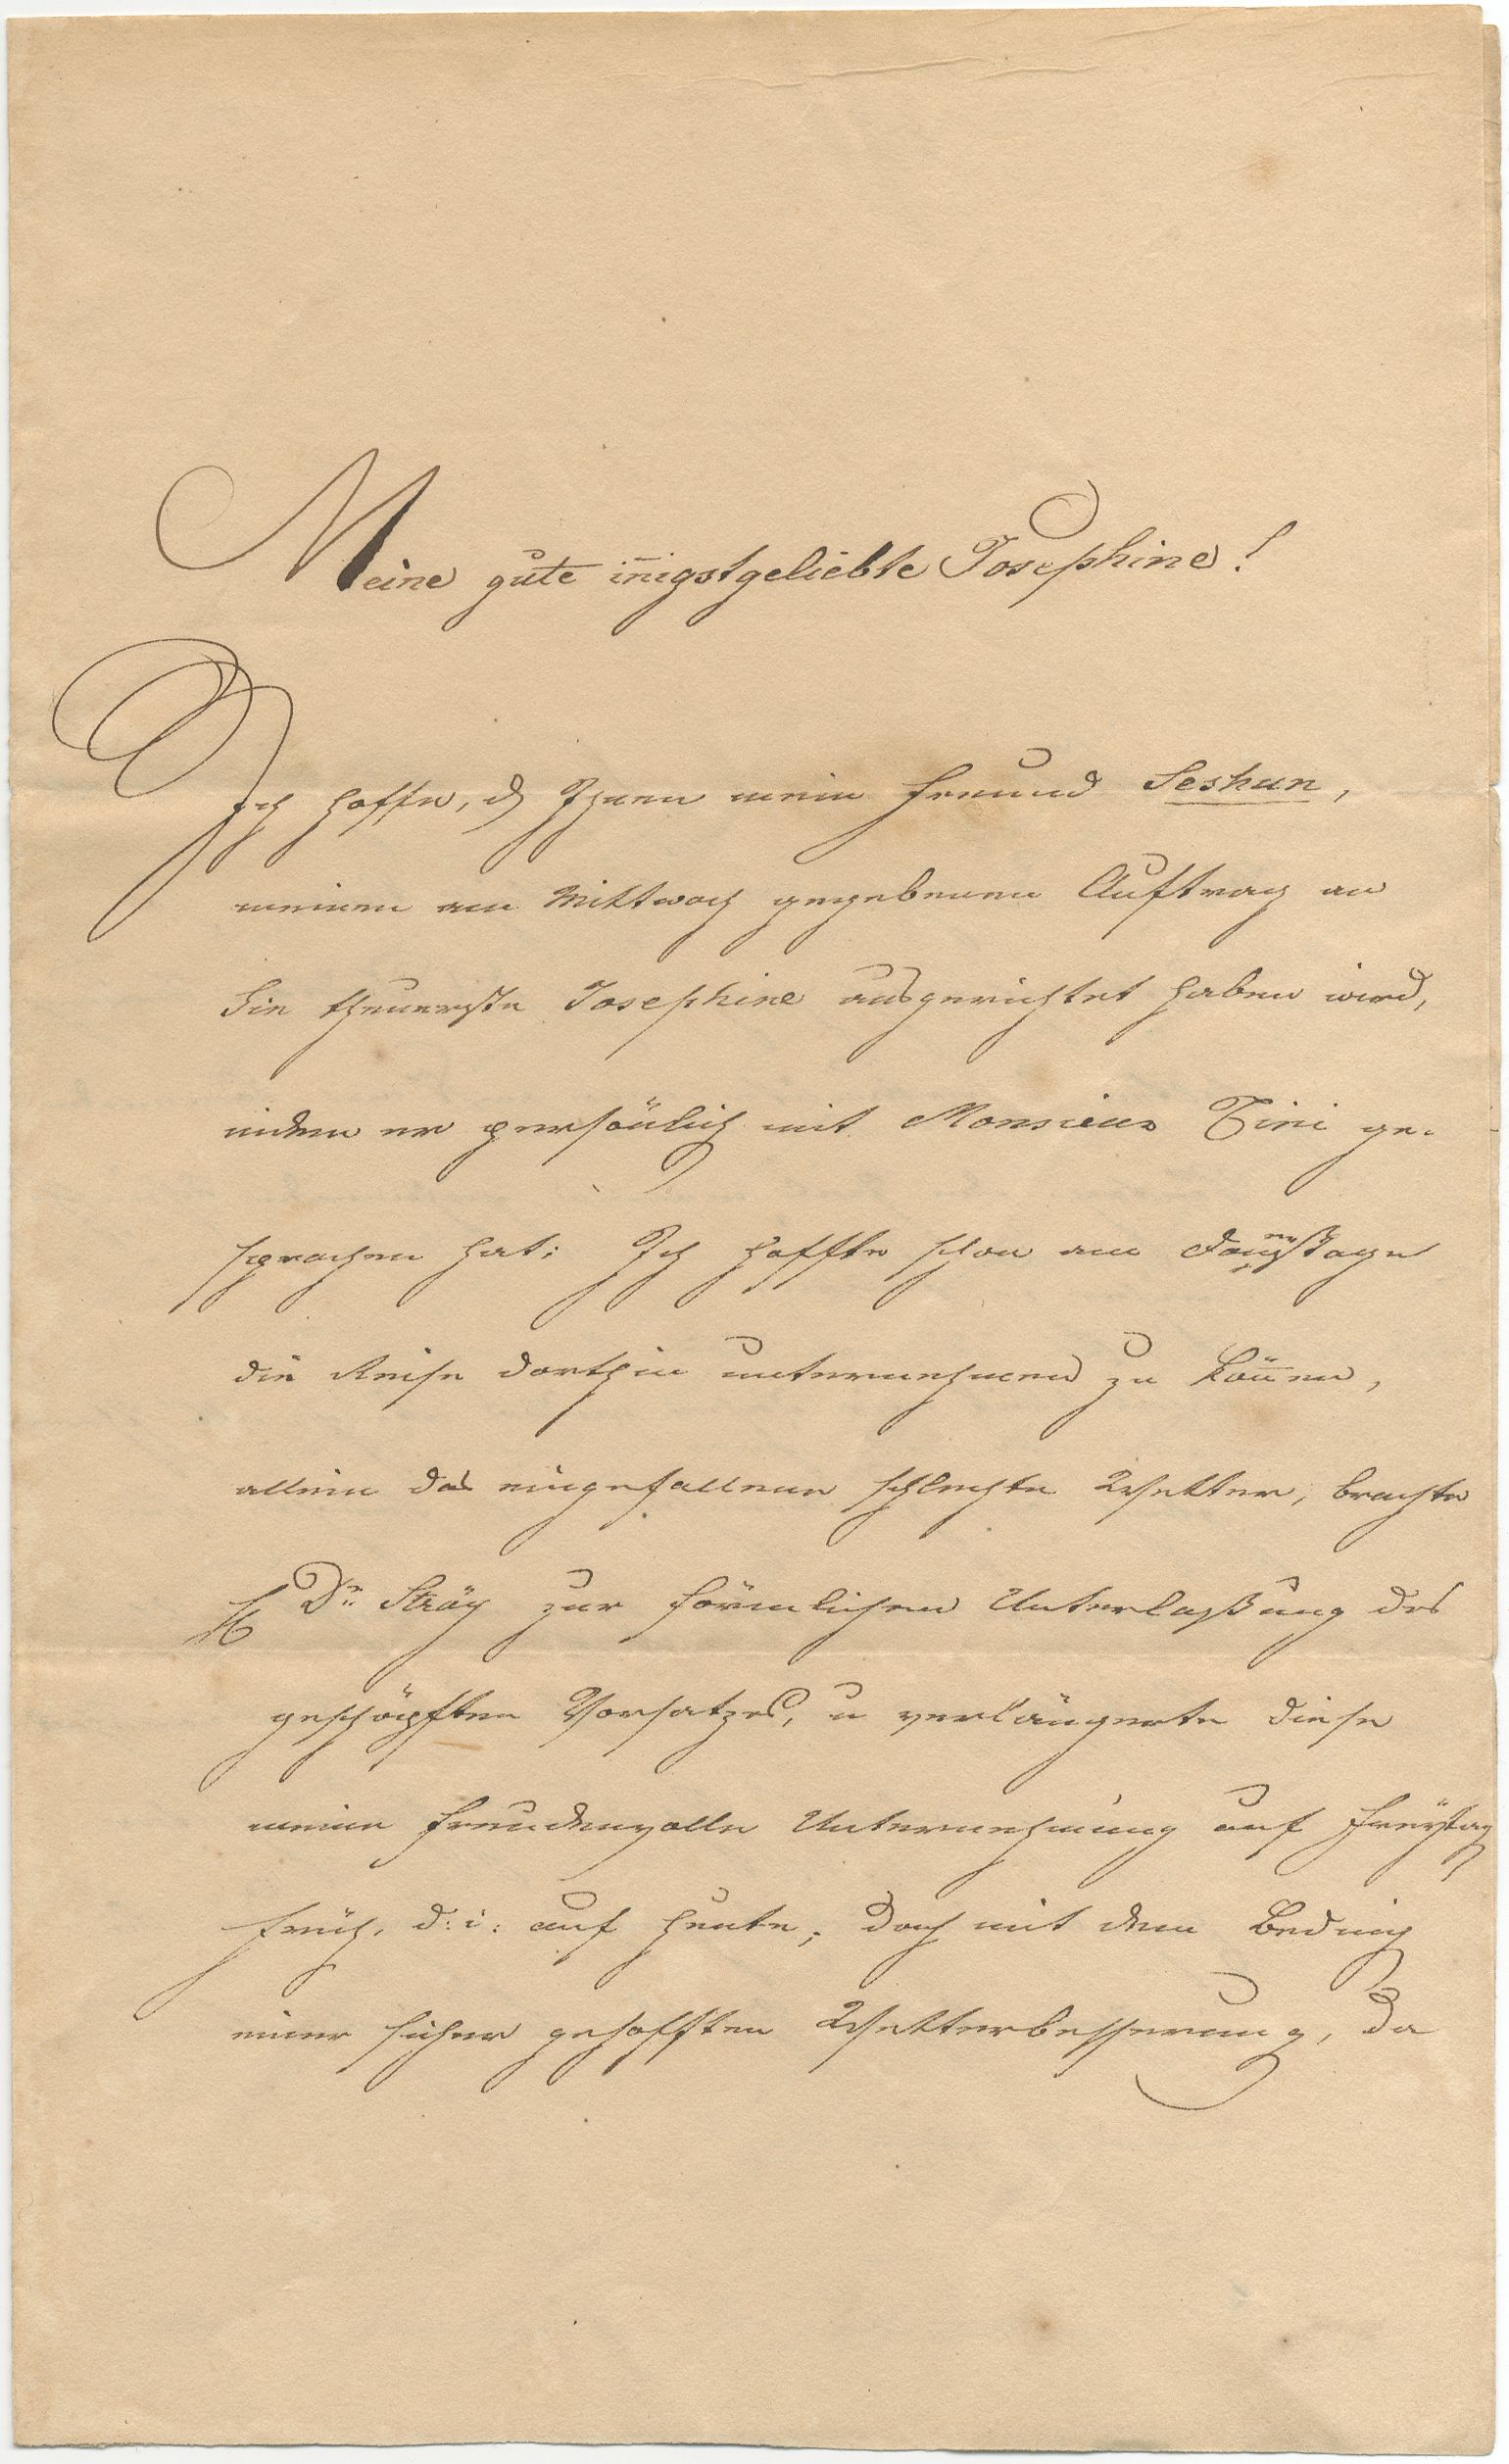 Meine gute in̄igstgeliebte Josephine!
Ich hoffe, dß Ihnen mein Freund Seshun,
meinen am Mittwoch gegebenen Auftrag an
Sie theuerste Josephine ausgerichtet haben wird,
indem er persön̄lich mit Monsieur Tini ge-
sprochen hat; Ich hoffte schon am Don̄erstage
die Reise dorthin unternehmen zu kön̄en,
allein das eingefallene schlechte Wetter, brachte
H Dr. Sträy zur förmlichen Unterlaßung des
geschöpften Vorsatzes, u verlängerte diese
meine freudenvolle Unternehmung auf Freÿtag
früh, d: i: auf heute; doch mit dem Beding
einer sicher gehofften Wetterbesserung, da